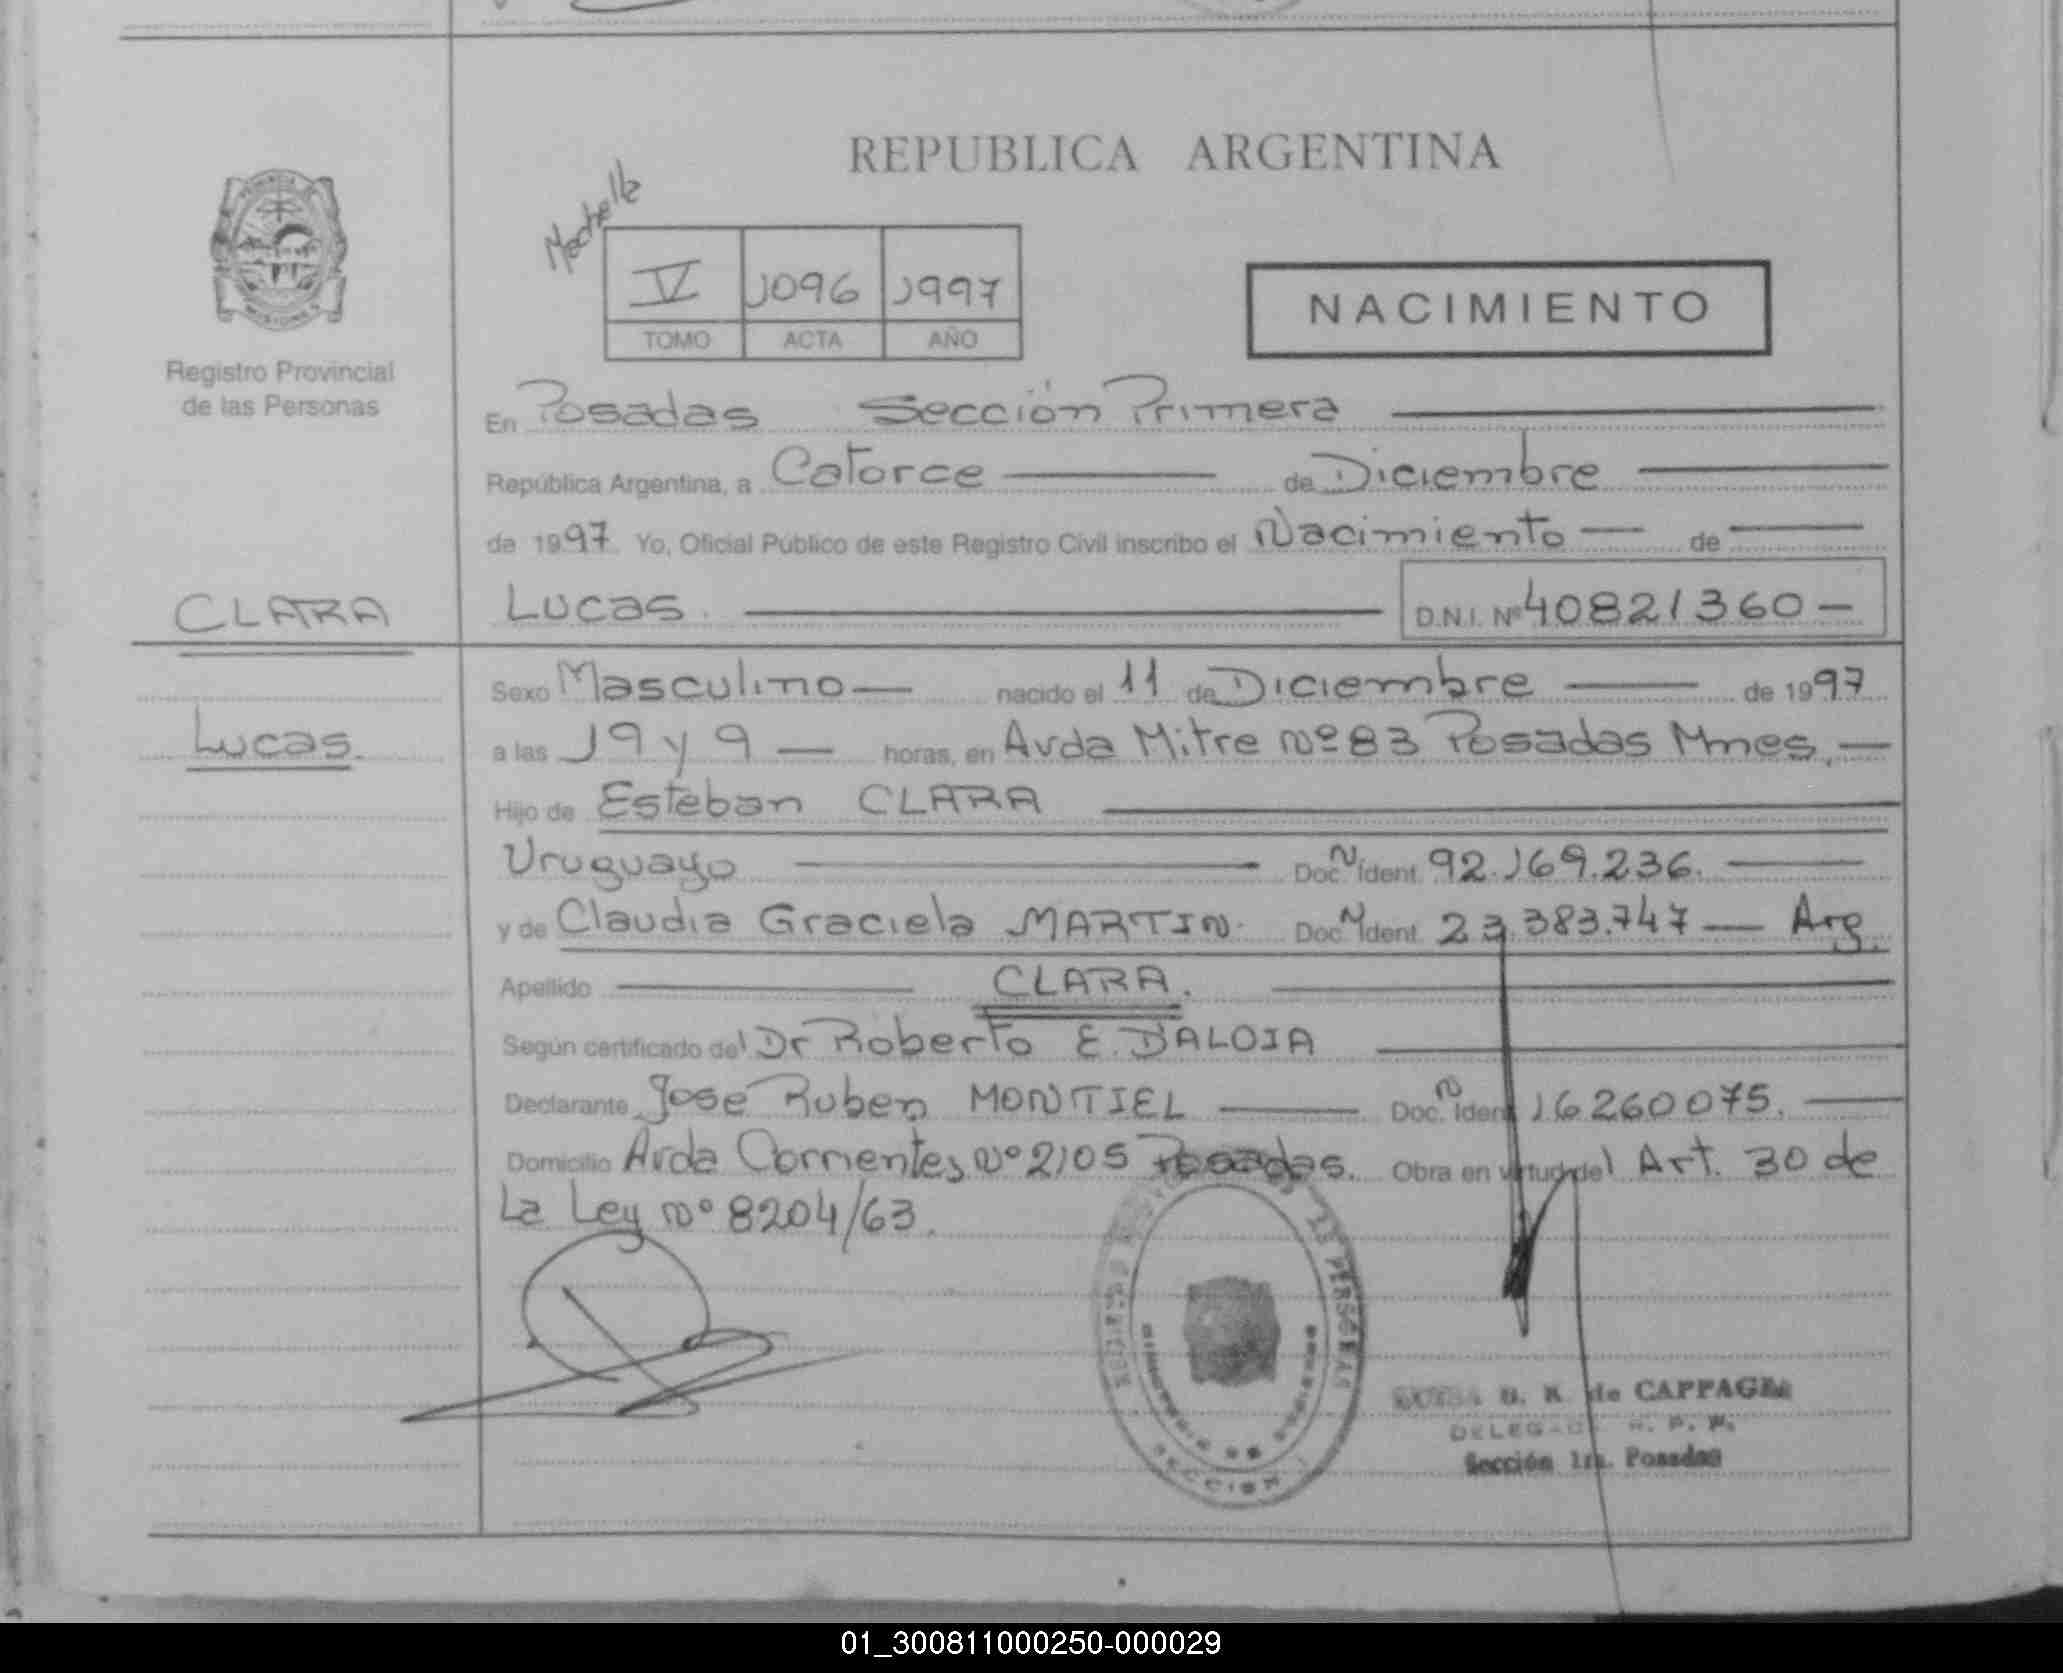 REPUBLICA ARGENTINA
PROVINCIA DE
MISIONES
Registro Provincial
de las Personas
V 1096 1997
TOMO ACTA AÑO
NACIMIENTO
En Posadas Sección Primera
República Argentina, a Catorce de Diciembre
de 1997 Yo, Oficial Público de este Registro Civil inscribo el Nacimiento de
CLARA
Lucas. D.N.I. Nº 40821360
Lucas.
Sexo Masculino nacido el 11 de Diciembre de 1997
a las 19 y 9 horas, en Avda Mitre Nº 83 Posadas Mnes.
Hijo de Esteban CLARA
Uruguayo Doc. N Ident. 92.169.236.
y de Claudia Graciela MARTIN. Doc. N Ident. 23.383.747 Arg.
Apellido CLARA.
Según certificado del Dr Roberto E. D'ALOIA
Declarante Jose Ruben MONTIEL Doc. N Ident. 16260075.
Domicilio Avda Corrientes Nº 2105 Posadas. Obra en virtud del Art. 30 de
La Ley Nº 8204/63.
DE LAS PERSONAS
MINISTERIO DE GOBIERNO
SECCION 1
de CAPPAGLI
DELEGADA R. P. P.
Sección 1ra. Posadas
01_300811000250-000029